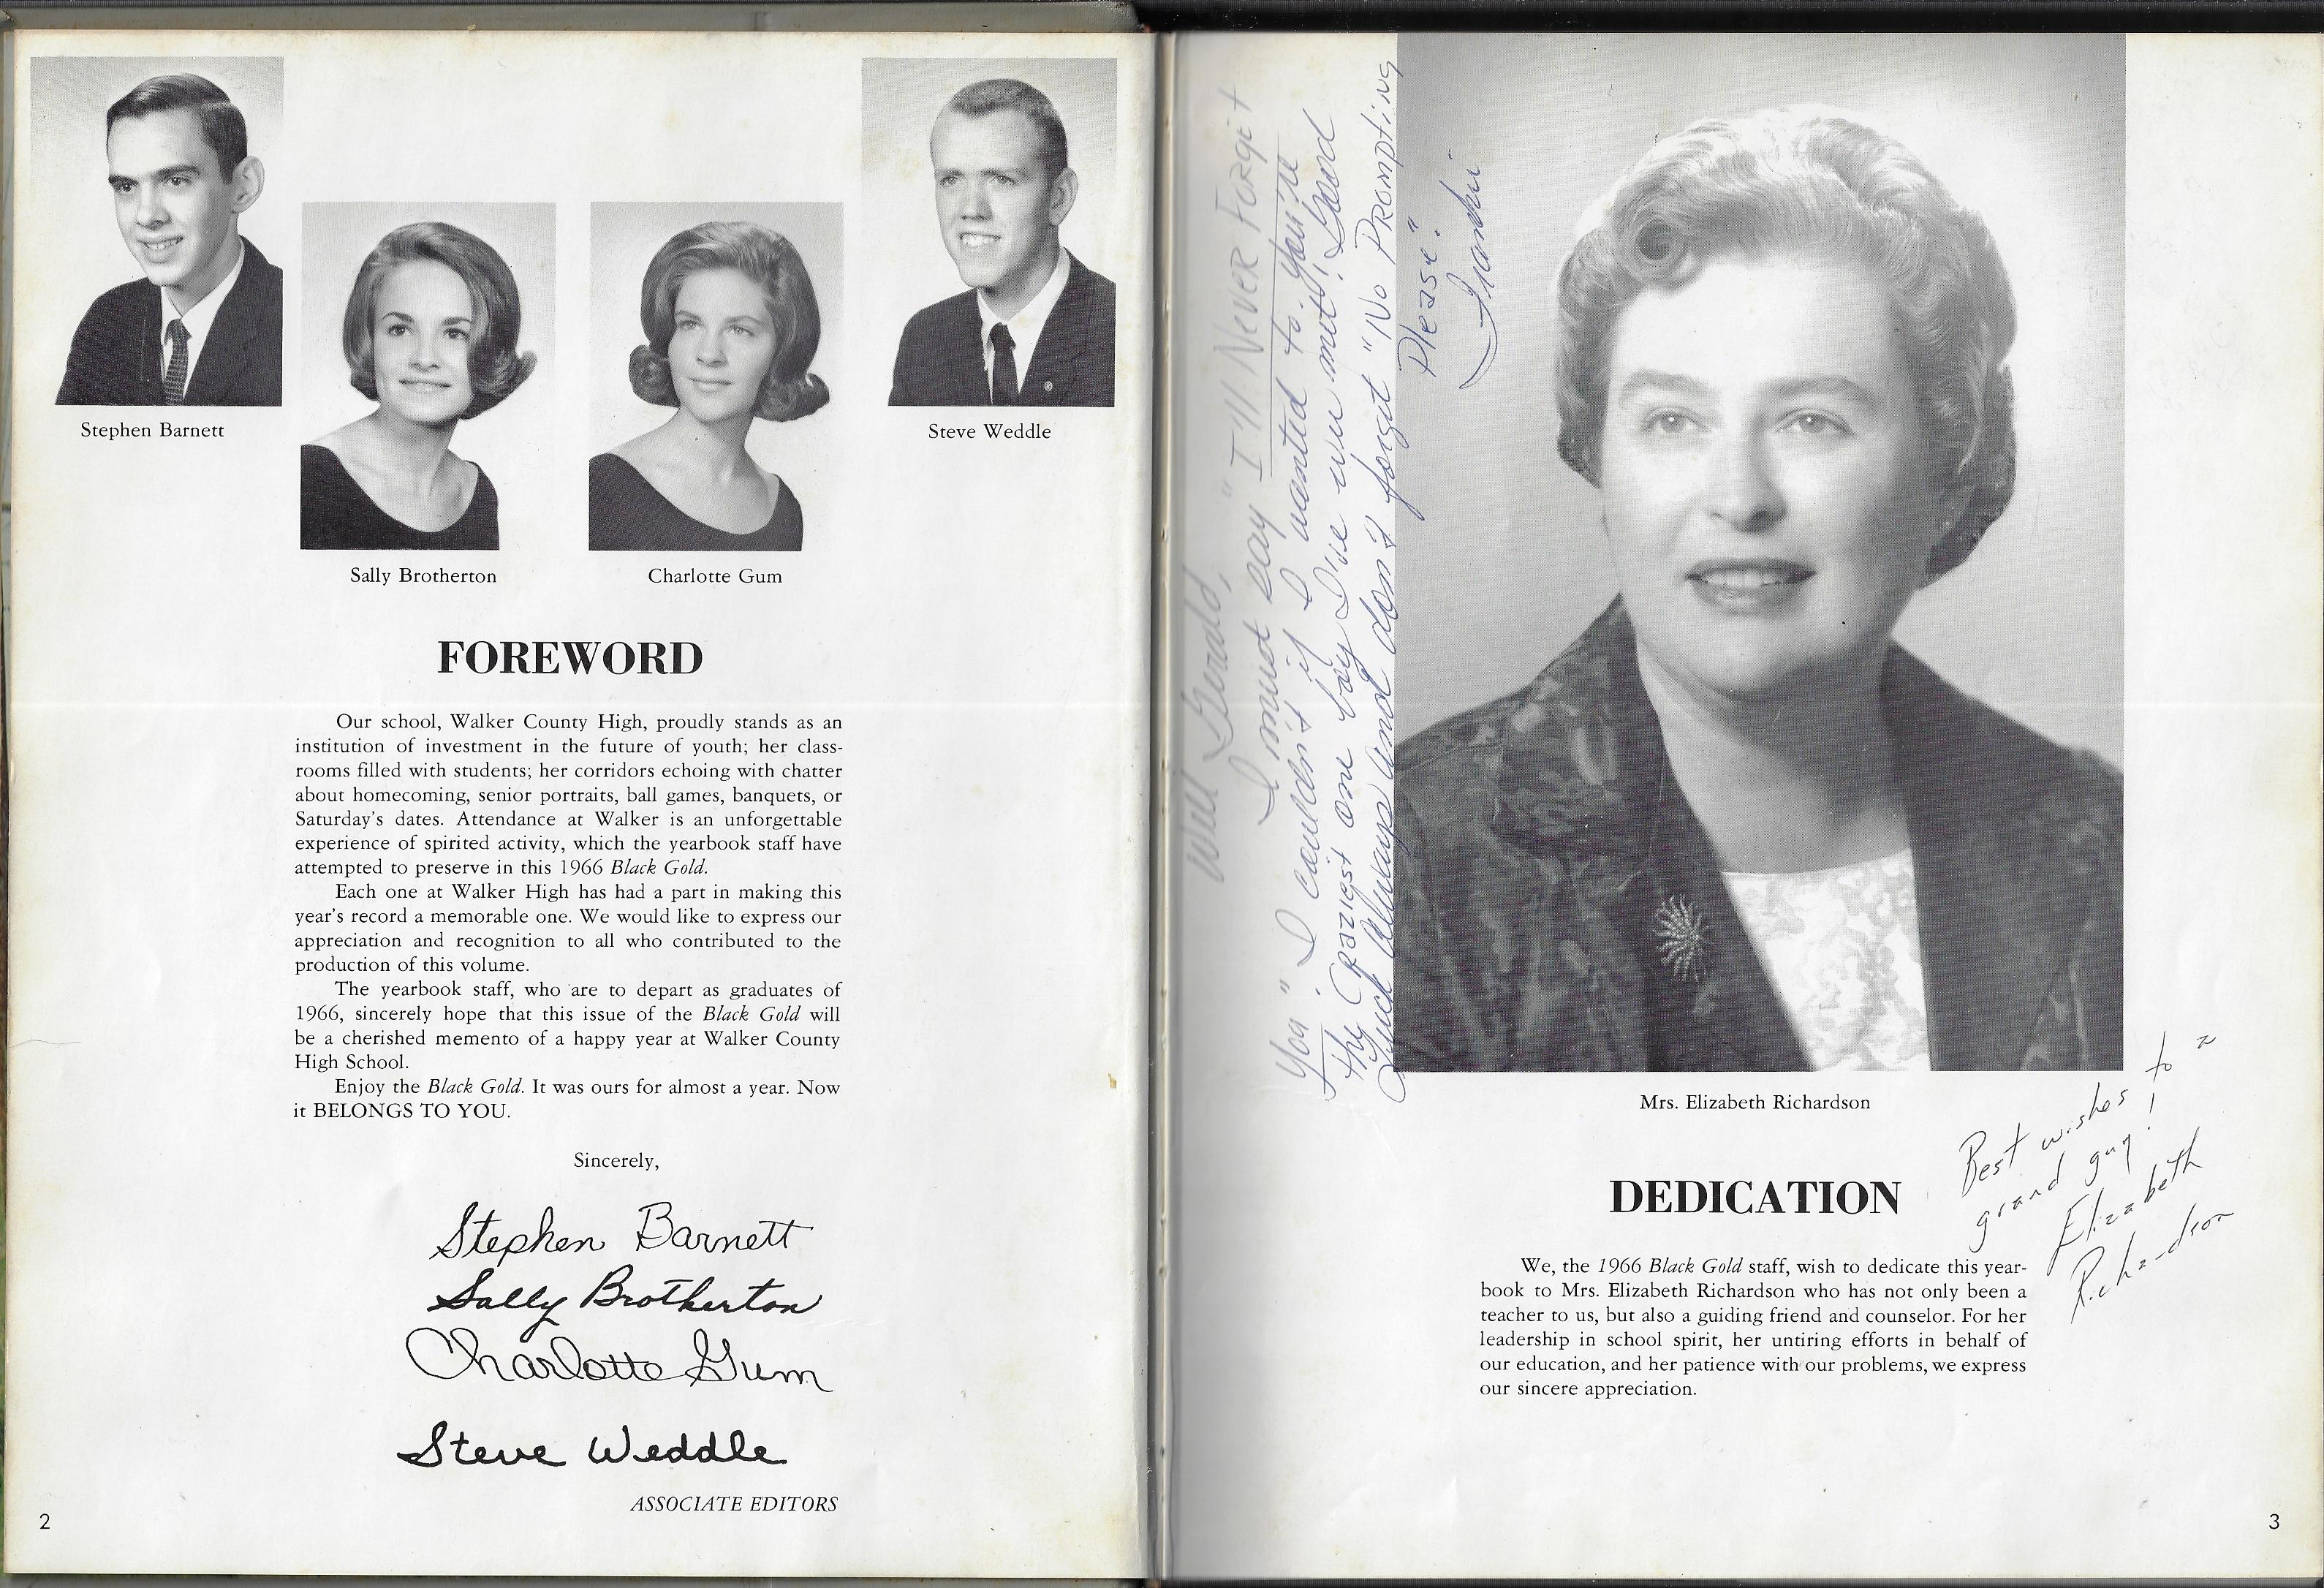 Stephen Barnett
Sally Brotherton
Charlotte Gum
Steve Weddle
FOREWORD
Our school, Walker County High, proudly stands as an
institution of investment in the future of youth; her class-
rooms filled with students; her corridors echoing with chatter
about homecoming, senior portraits, ball games, banquets, or
Saturday's dates. Attendance at Walker is an unforgettable
experience of spirited activity, which the yearbook staff have
attempted to preserve in this 1966 Black Gold.
Each one at Walker High has had a part in making this
year's record a memorable one. We would like to express our
appreciation and recognition to all who contributed to the
production of this volume.
The yearbook staff, who are to depart as graduates of
1966, sincerely hope that this issue of the Black Gold will
be a cherished memento of a happy year at Walker County
High School.
Enjoy the Black Gold. It was ours for almost a year. Now
it BELONGS TO YOU.
Sincerely,
Stephen Barnett
Sally Brotherton
Charlotte Gum
Steve Weddle
ASSOCIATE EDITORS
2
Well Gerald,
I must say "I'll Never Forget
You". I couldn't if I wanted to. You're
the craziest one boy I've ever met! Good
Luck Always and don't forget "No Prompting
Please".
Mrs. Elizabeth Richardson
Best wishes to a
grand guy!
Elizabeth
Richardson
DEDICATION
We, the 1966 Black Gold staff, wish to dedicate this year-
book to Mrs. Elizabeth Richardson who has not only been a
teacher to us, but also a guiding friend and counselor. For her
leadership in school spirit, her untiring efforts in behalf of
our education, and her patience with our problems, we express
our sincere appreciation.
3